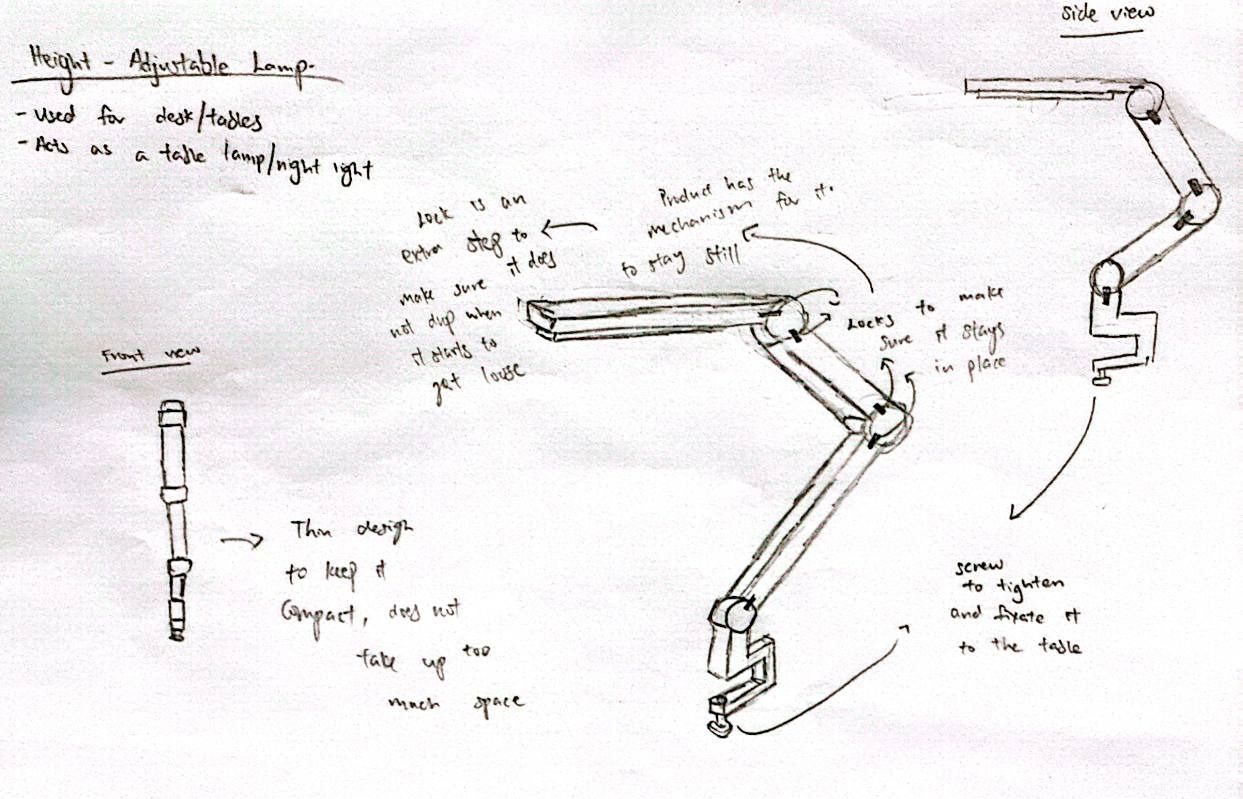 Side view
Height - Adjustable Lamp.
- Used for desk/tables
- Acts as a table lamp/night light
Lock is an
extra step to
make sure it does
not drop when
it starts to
get loose
Product has the
mechanism for it.
to stay still
Locks to make
sure it stays
in place
Front view
Thin design
to keep it
Compact, does not
take up too
much space
screw
to tighten
and fixate it
to the table